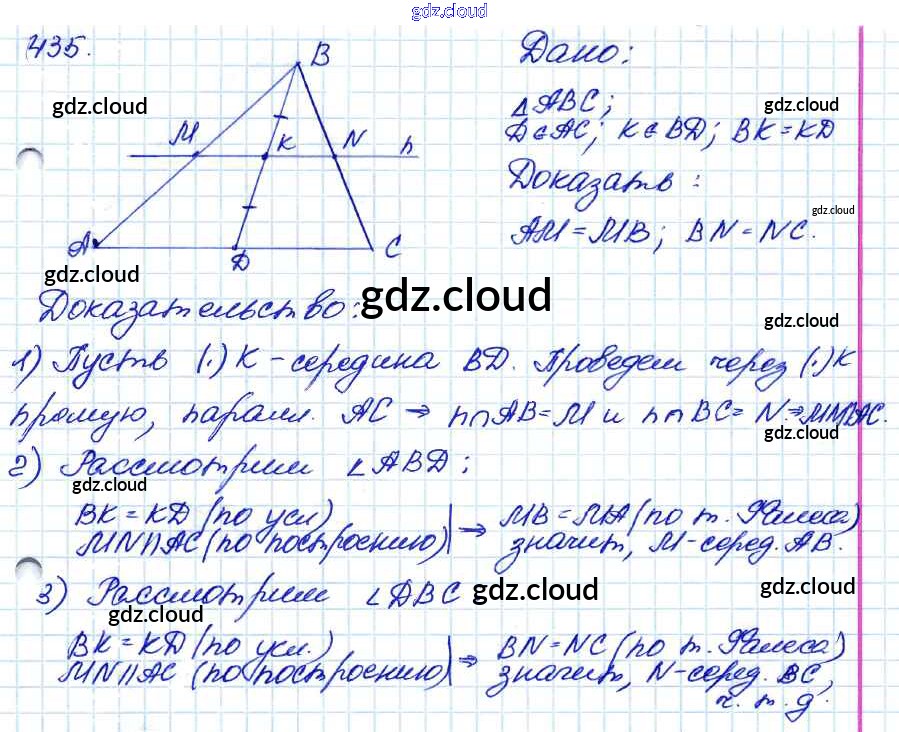 gdz.cloud
gdz.cloud
435.
B
Дано:
gdz.cloud
gdz.cloud
△ABC;
D∈AC; K∈BD; BK=KD
M K N n
Доказать:
gdz.cloud
AM=MB; BN=NC.
A D C
gdz.cloud
gdz.cloud
gdz.cloud
Доказательство:
gdz.cloud
1) Пусть (·) K - середина BD. Проведем через (·) K
прямую, паралл. AC → n∩AB=M и n∩BC=N⇒MN∥AC.
gdz.cloud
2) Рассмотрим ∠ABD:
gdz.cloud
BK=KD (по усл) | ⇒ MB=MA (по т. Фалеса)
MN∥AC (по построению) | значит, M-серед. AB.
gdz.cloud
gdz.cloud
3) Рассмотрим ∠DBC
gdz.cloud
gdz.cloud
gdz.cloud
BK=KD (по усл.) | ⇒ BN=NC (по т. Фалеса)
MN∥AC (по построению) | значит, N-серед. BC,
ч. т. д.
gdz.cloud
gdz.cloud